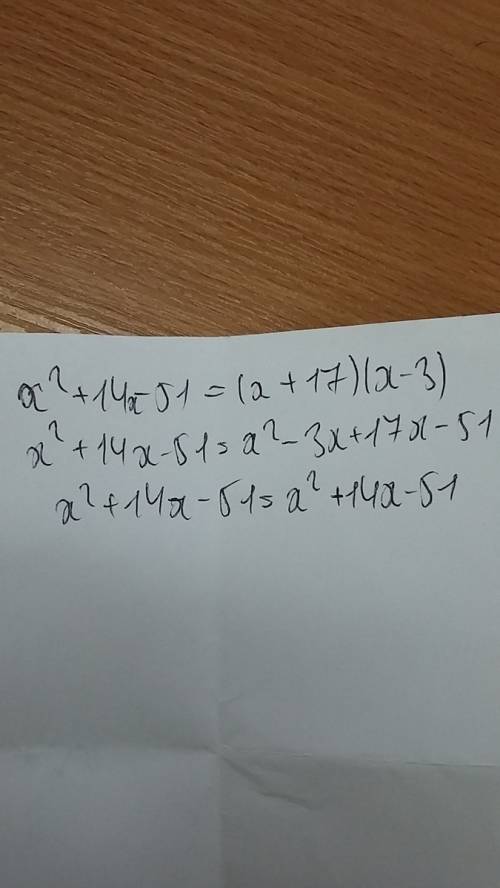 x²+14x-51=(x+17)(x-3)
x²+14x-51=x²-3x+17x-51
x²+14x-51=x²+14x-51